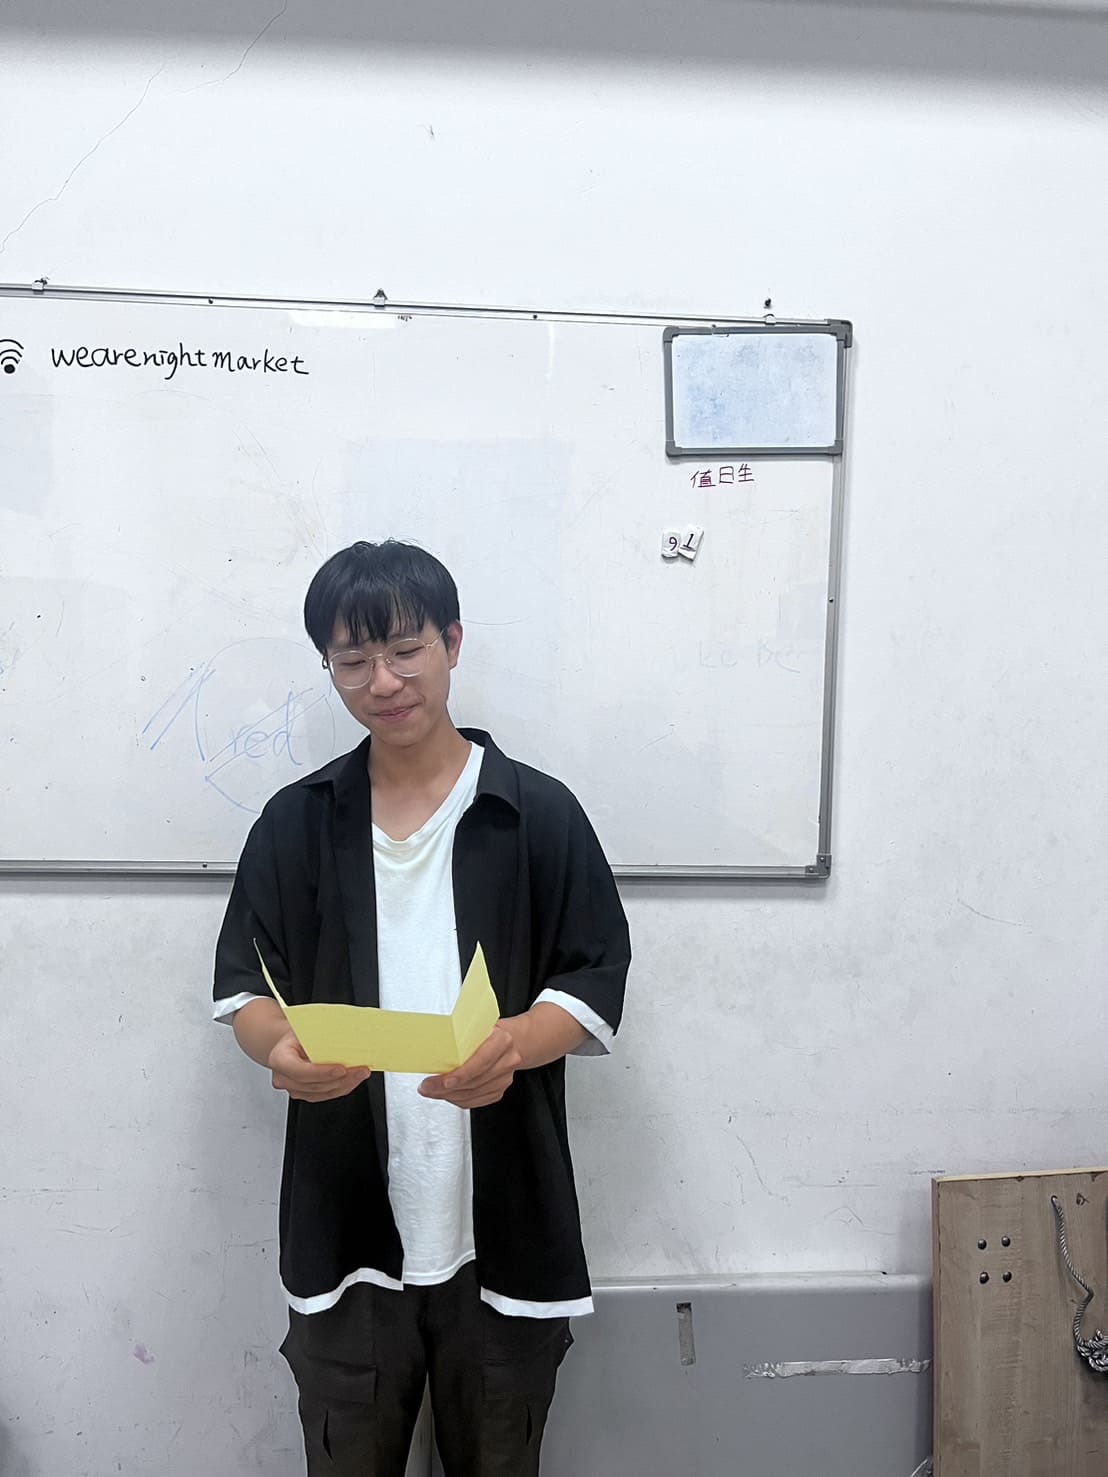 wearenightmarket
值日生
91
red